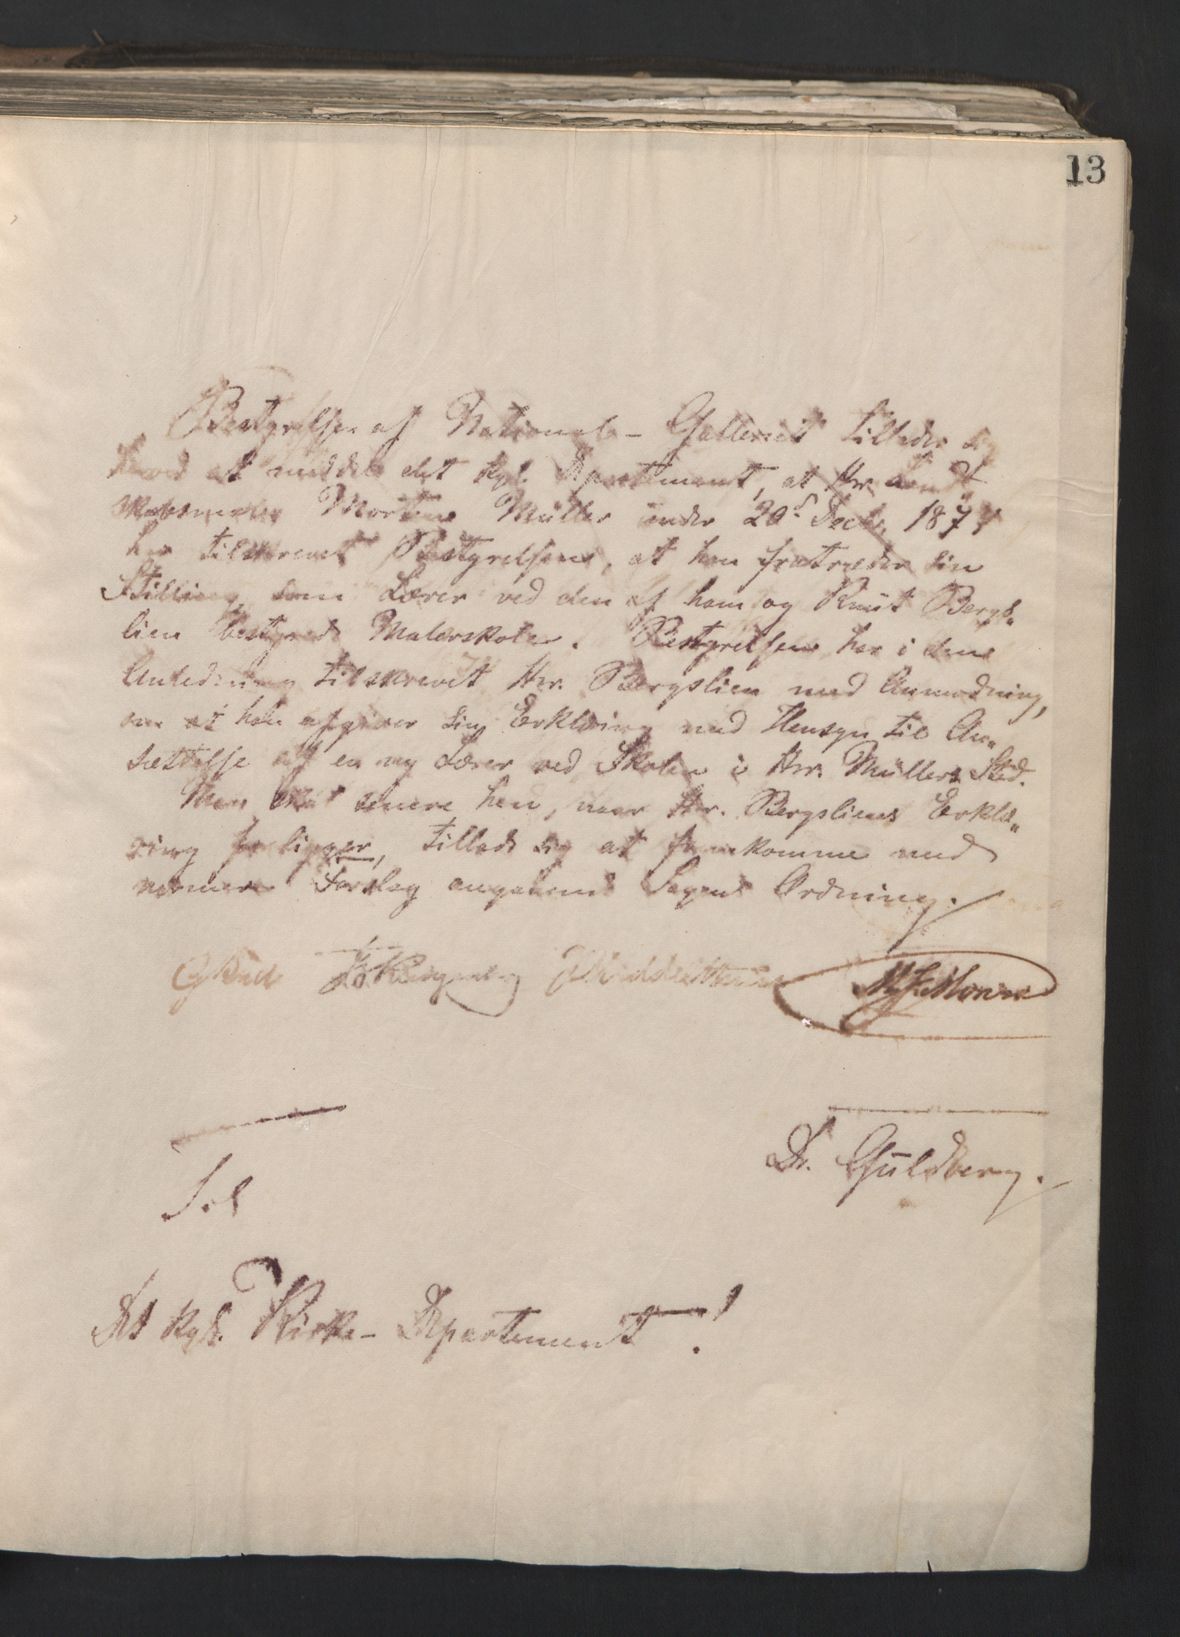 13
Bestyrelsen af National-Galleriet tillader sig
herved at meddele det kgl. Departement, at Hr. Land-
skabsmaler Morten Müller under 20d Decbr. 1874
har tilskrevet Bestyrelsen, at han fratræder sin
Stilling som Lærer ved den af ham og Knut Bergs-
lien bestyrede Malerskole. Bestyrelsen har i den
Anledning tilskrevet Hr. Bergslien med Anmodning,
om at han afgiver sin Erklæring med Hensyn til An-
sættelse af en ny Lærer ved Skolen i Hr. Müllers Sted.
Man skal senere hen, naar Hr. Bergsliens Erklæ-
ring foreligger, tillade sig at fremkomme med
nærmere Forslag angaaende Sagens Ordning.
Middelthun
Dr. Guldberg.
Til
Det kgl. Kirke-Departement!